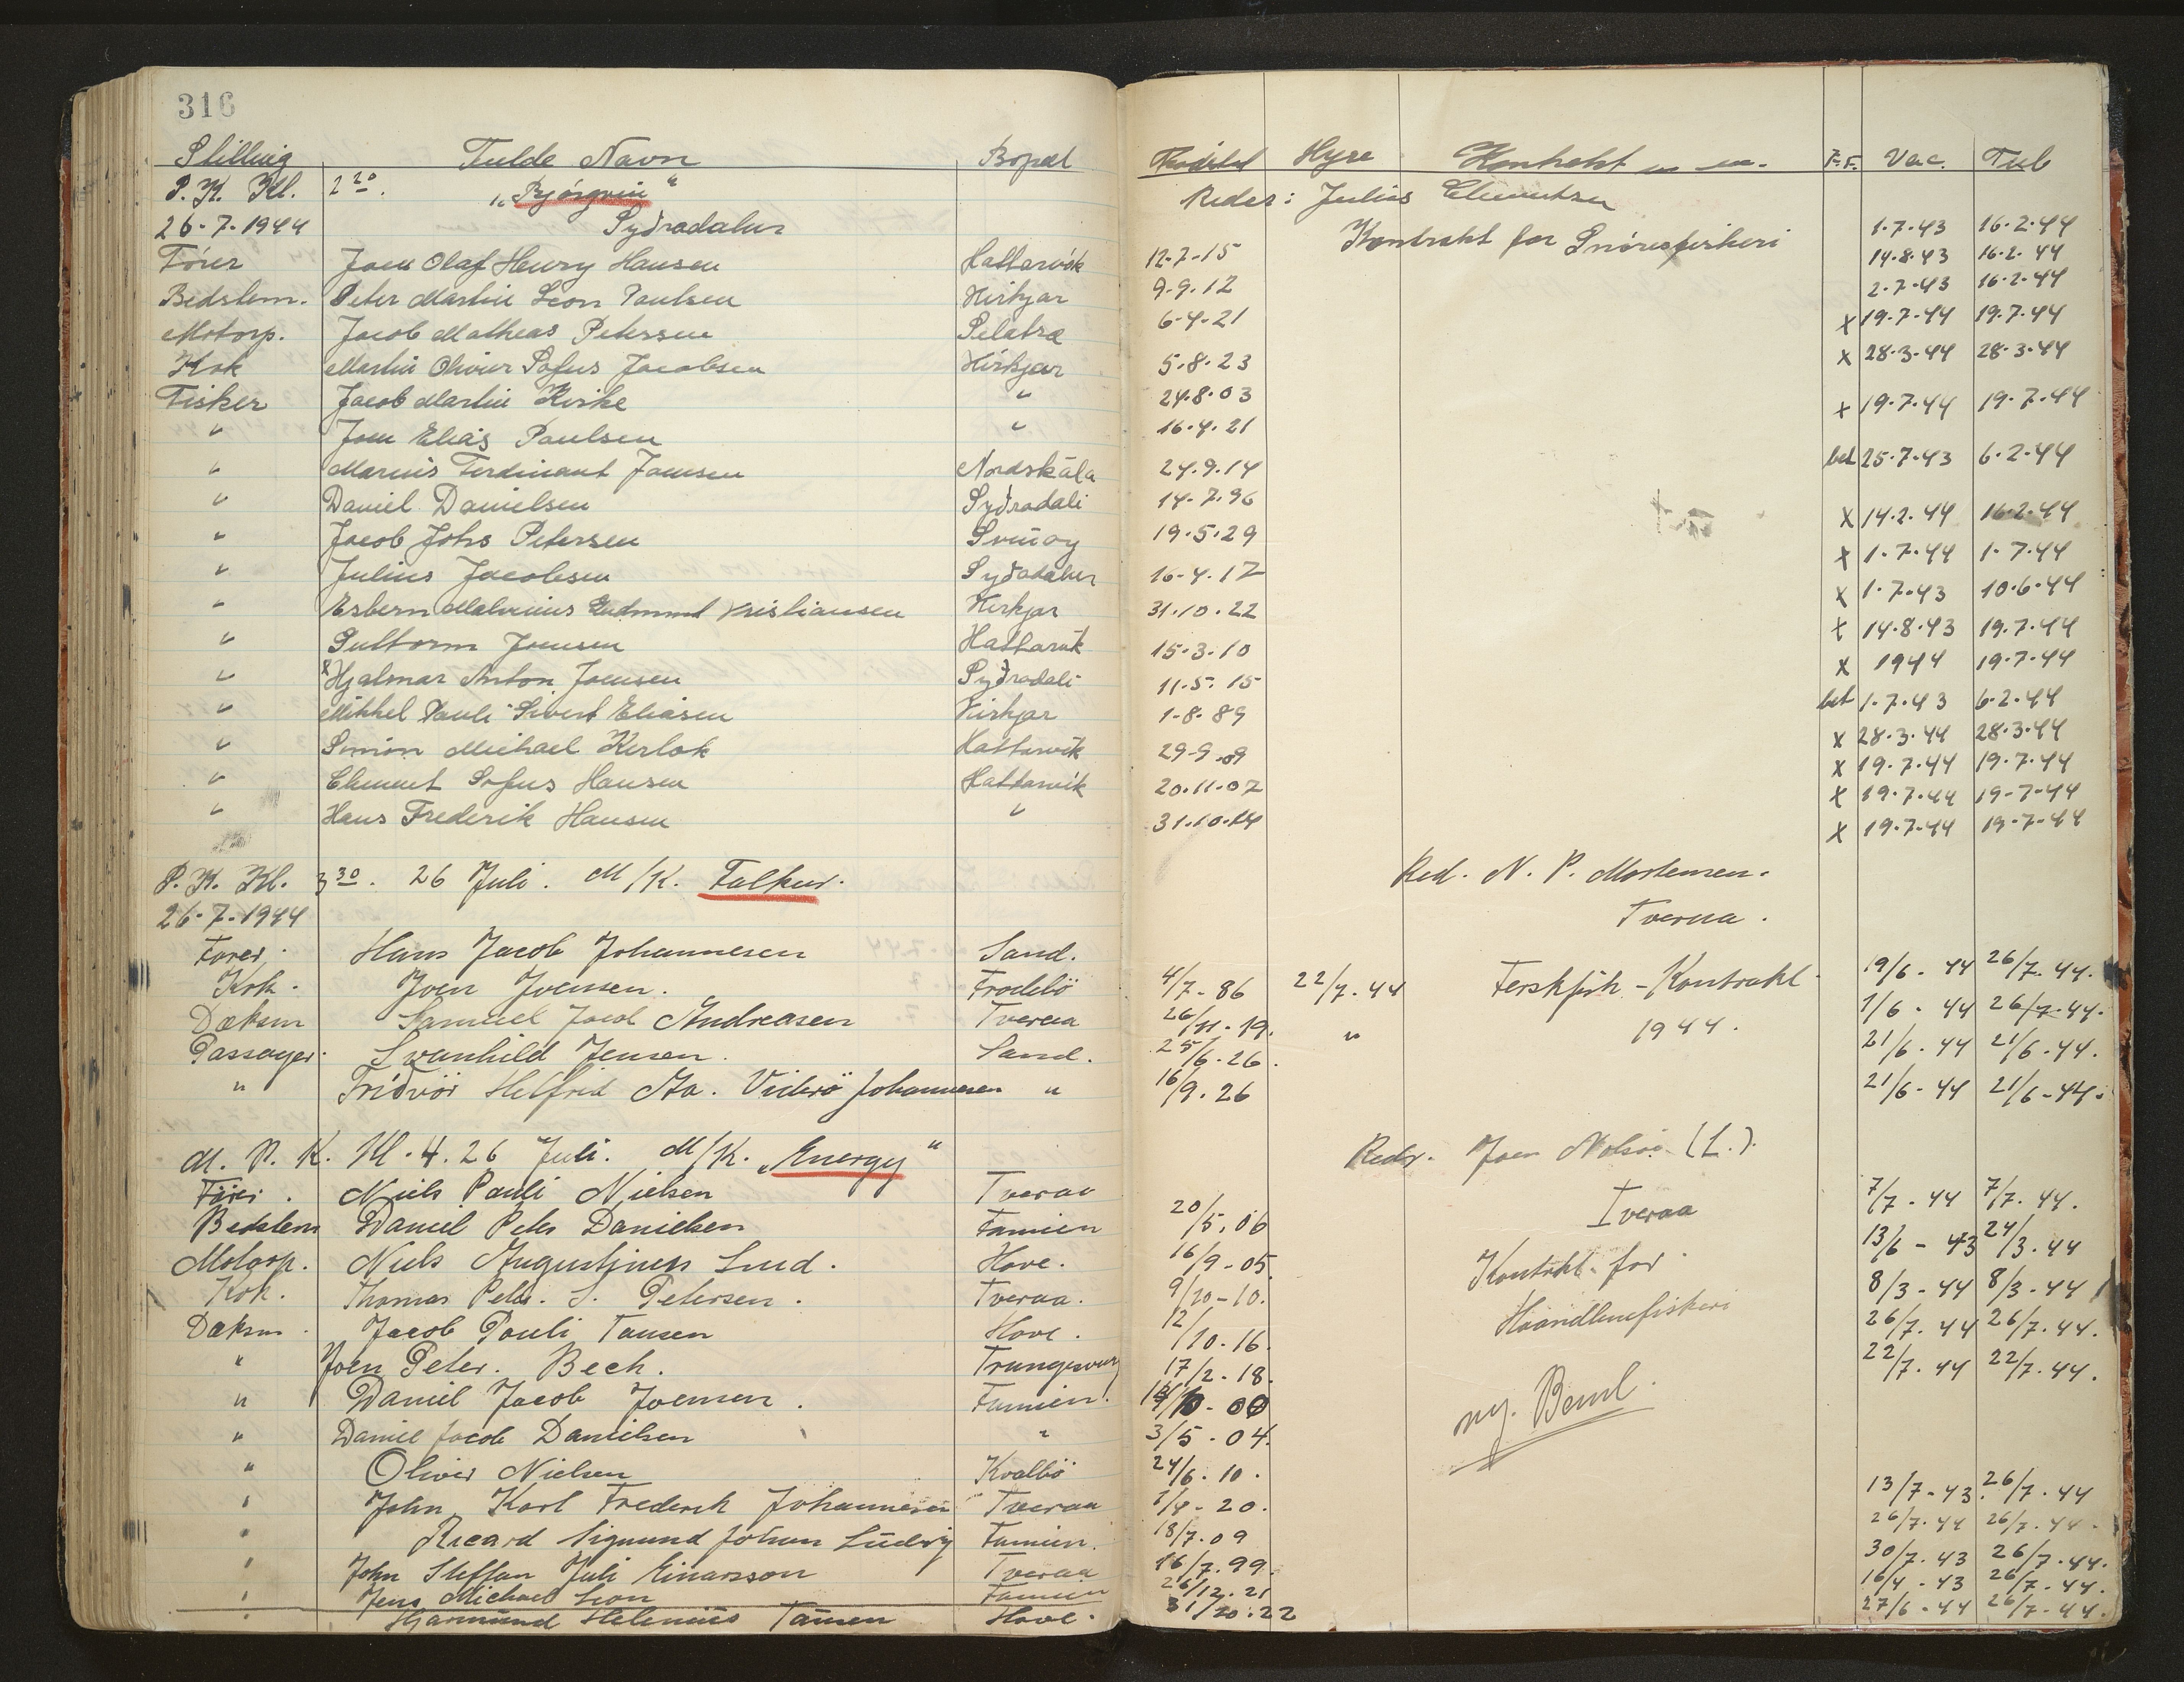 316
Stilling Fulde Navn Bopæl Fødested Hyre Kontrakt m m. F.F. Vac. Tub
P. K. Kl. 2 20. "Bjórgvin" Reder: Julius Clementsen
26-7-1944 Syðradalur Kontrakt for Snórefiskeri 1.7.43 16.2.44
Fører Joen Olaf Henry Hansen Hattarvík 12-7-15 14.8.43 16.2.44
Bedstem. Peter Martin Leon Paulsen Kirkjar 9.9.12 2.7.43 16.2.44
Motorp. Jacob Matheas Petersen Selatra 6-4-21 x 19.7.44 19.7.44
Kok Martin Olivur Sofus Jacobsen Kirkjar 5.8.23 x 28.3.44 28.3.44
Fisker Jacob Martin Kirke " 24.8.03 x 19.7.44 19.7.44
" Joen Elias Paulsen " 16.4.21
" Marius Ferdinant Joensen Nordskála 24.9.14 bet 25.7.43 6.2.44
" Daniel Danielsen Syðradali 14-7.96
" Jacob Johs Petersen Svínoy 19.5.29 x 14.2.44 16.2.44
" Julius Jacobsen Syðradalur 16-4.17 x 1.7.44 1.7.44
" Esbern Malvinus Gudmund Kristiansen Kirkjar 31.10.22 x 1.7.43 10.6.44
" Guttorm Joensen Hattarvik 15.3.10 x 14.8.43 19.7.44
" x Hjalmar Anton Joensen Syðradali 11.5.15 x 1944 19.7.44
" Mikkel Pauli Sivert Eliasen Kirkjar 1-8.89 bet 1.7.43 6.2.44
" Simon Michael Kerlok Hattarvik 29-9.09 x 28.3.44 28.3.44
" Clement Sofus Hansen Hattarvík 20.11.07 x 19.7.44 19.7.44
" Hans Frederik Hansen " 31.10.14 x 19.7.44 19-7-44
x 19.7.44 19-7-44
P. K. Kl. 3 30. 26 Juli. M/K. Falkur. Red. N. P. Mortensen.
26-7-1944 Tveraa.
Fører. Hans Jacob Johannesen Sand.
Kok. Joen Joensen. Frodebö 4/7-86 22/7.44 Ferskfisk-Kontrakt 19/6-44 26/7.44.
Dæksm Samuel Jacob Andreasen Tveraa 26/11-19. " 1944. 1/6-44 26/7.44.
Passager. Svanhild Jensen. Sand. 25/6.26. 21/6-44 21/6-44.
" Fríðvör Helfred Aa. Viderö Johannesen " 16/9.26 21/6-44 21/6-44.
M. P. K. Kl. 4. 26 Juli. M/K. "Energy" Redr. Joen Nolsöe (L.).
Fører. Niels Pauli Nielsen Tveraa Tveraa 7/7-44 7/7.44.
Bedstem Daniel Peter Danielsen Famien 20/5.06 13/6-43 24/3.44
Motorp. Niels Augustinus Lund. Hove. 16/9-05 Kontrakt for 8/3-44 8/3-44
Kok. Thomas Peter. S. Petersen. Tveraa. 9/10-10. Haandlinefiskeri 26/7.44 26/7.44.
Dæksm. Jacob Pauli Tausen Hove. 12/10.16. 22/7.44 22/7.44.
" Joen Peter. Bech. Trungisvaag 17/2-18.
" Daniel Jacob Joensen. Famien.
" Daniel Jacob Danielsen " 3/5.04.
" Oliver Nielsen Kvalbö 24/6.10. 13/7-43. 26/7.44
" John Karl Frederik Johannesen Tveraa 1/4-20. 26/7.44 26/7.44.
" Ricard Sigmund Johan Ludvig Famien. 18/7.09 30/7.43 26/7.44.
" John Steffan Juli Einarsson Tveraa 16/7.99. 16/4-43 26/7-44.
" Jens Michael Leon Famien 26/12.21 27/6-44 26/7-44.
" Hjarmund Helenius Tausen Hove. 31/10.22